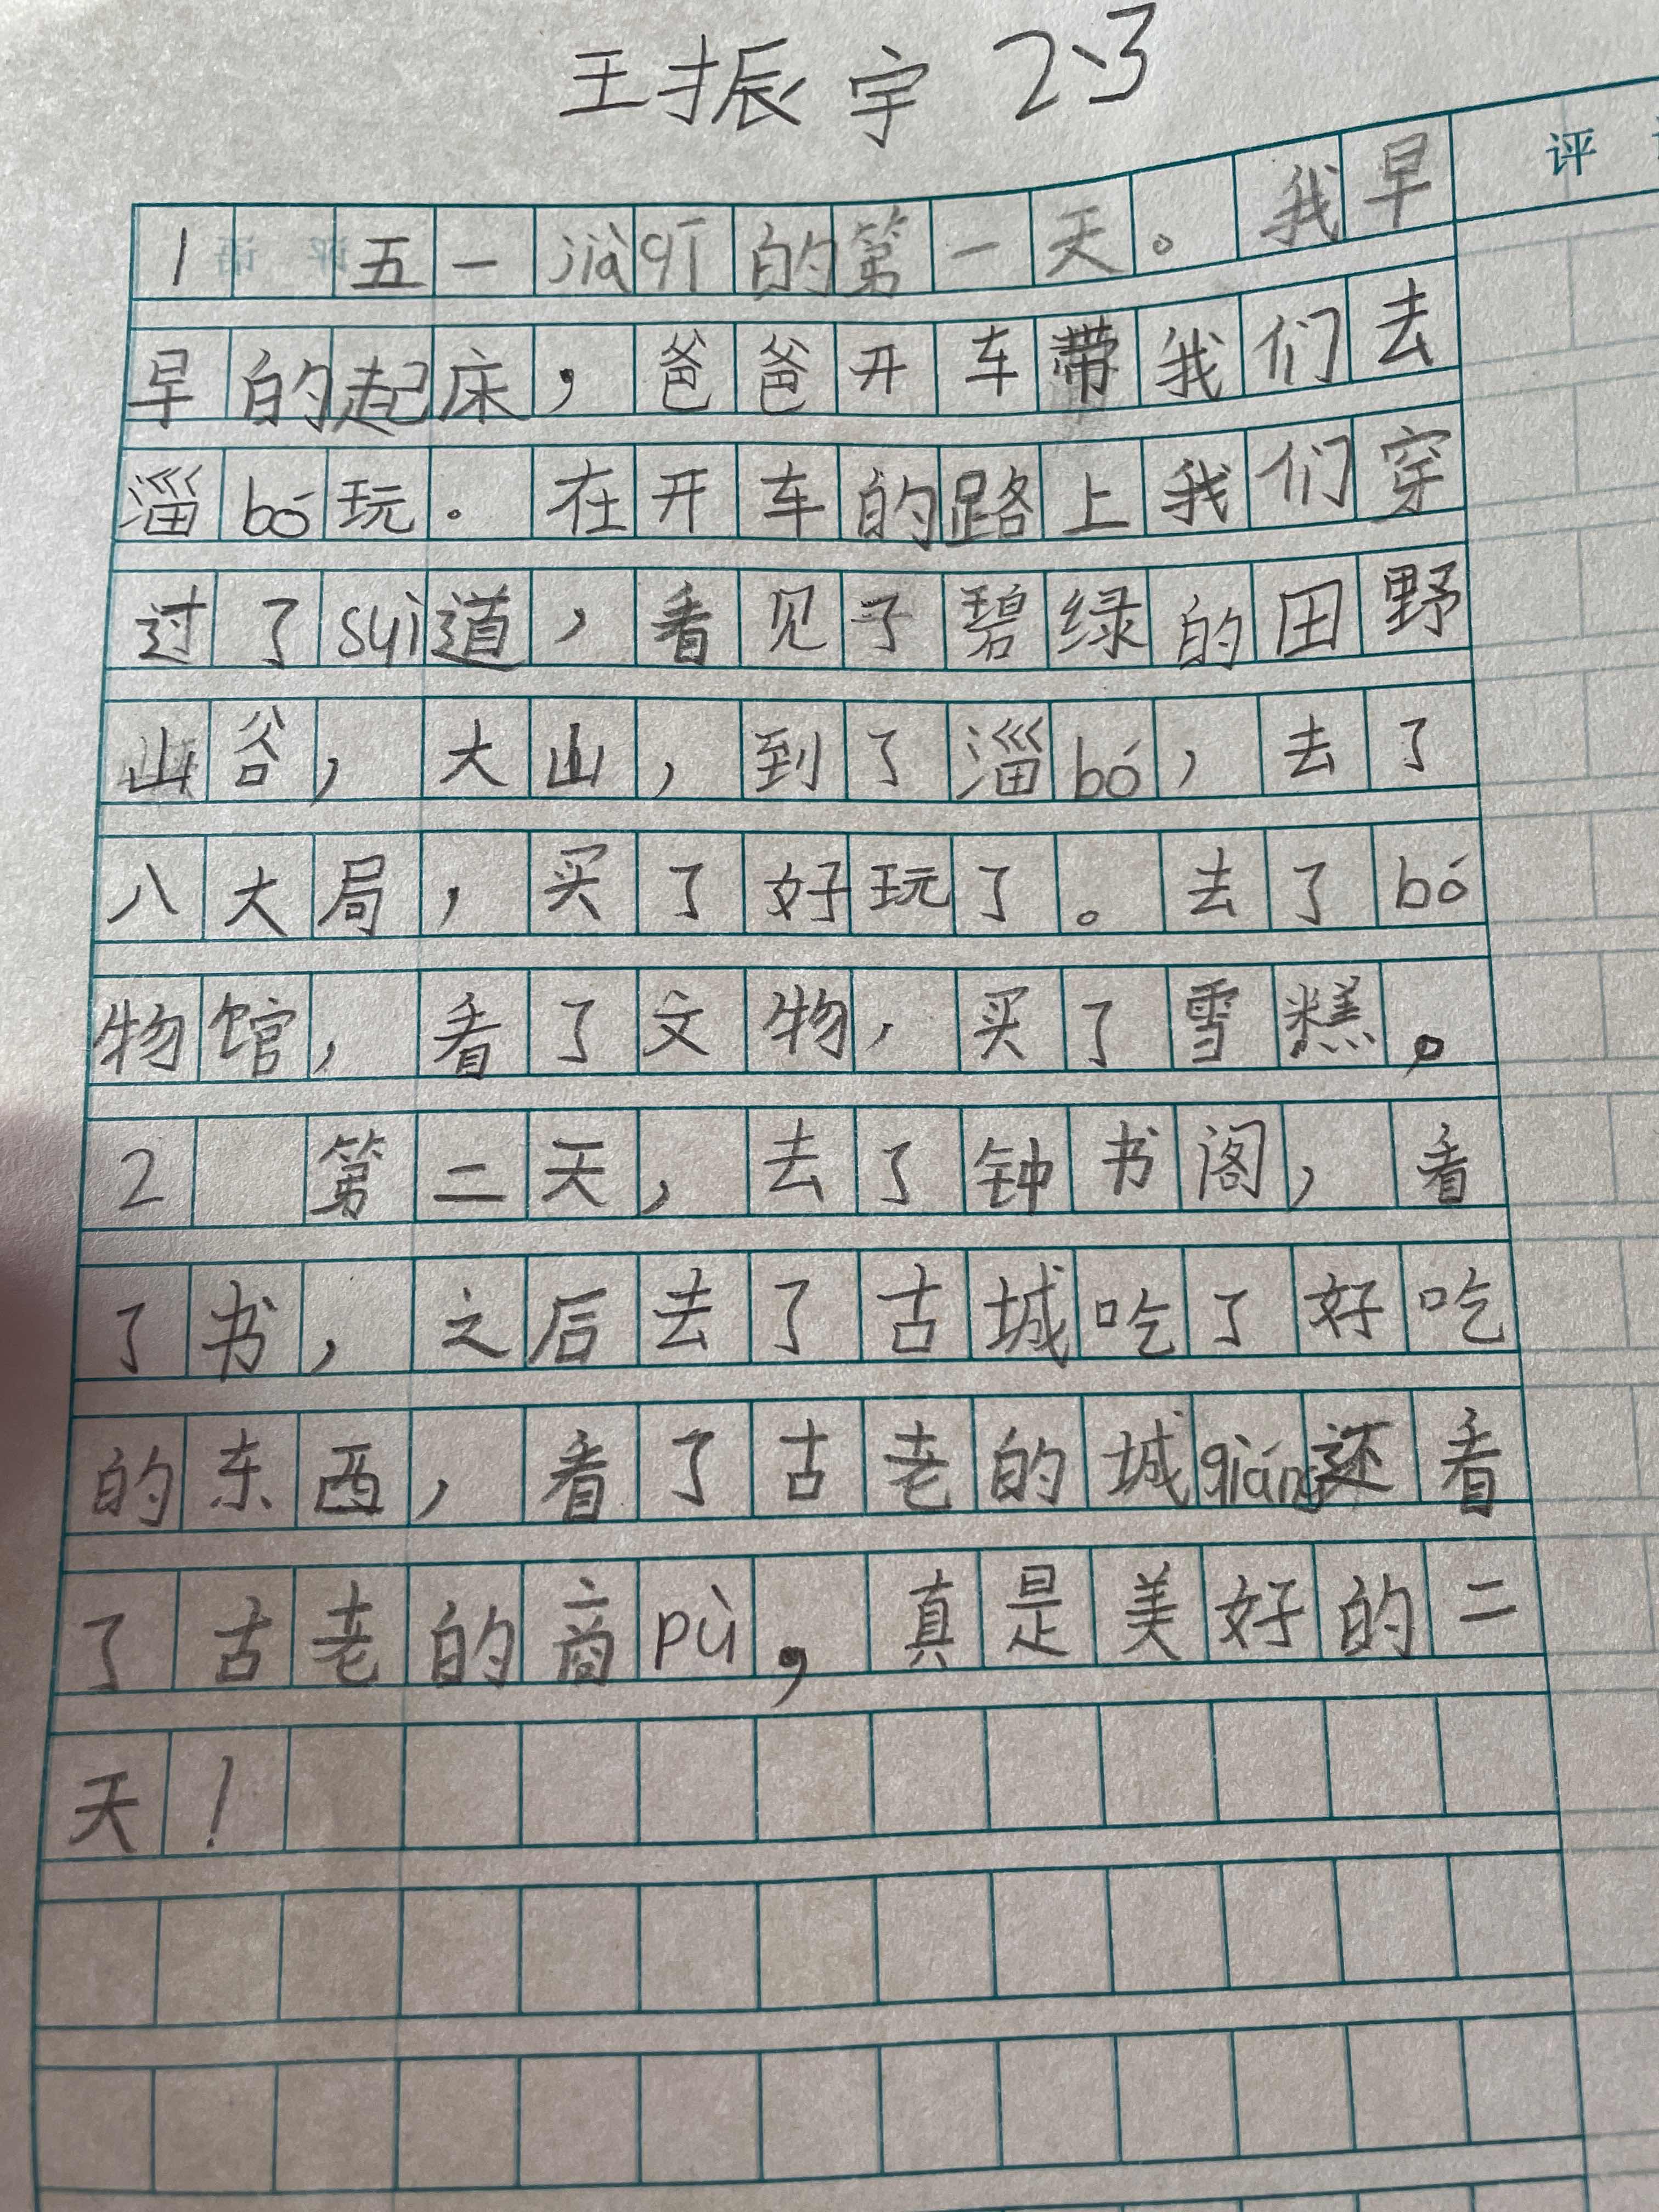 王振宇 2、3
评
1 五一jiàqī的第一天。我早
早的起床，爸爸开车带我们去
淄bó玩。在开车的路上我们穿
过了suì道，看见了碧绿的田野
山谷，大山，到了淄bó，去了
八大局，买了好玩了。去了bó
物馆，看了文物，买了雪糕。
2 第二天，去了钟书阁，看
了书，之后去了古城吃了好吃
的东西，看了古老的城qiáng还看
了古老的商pù，真是美好的二
天！